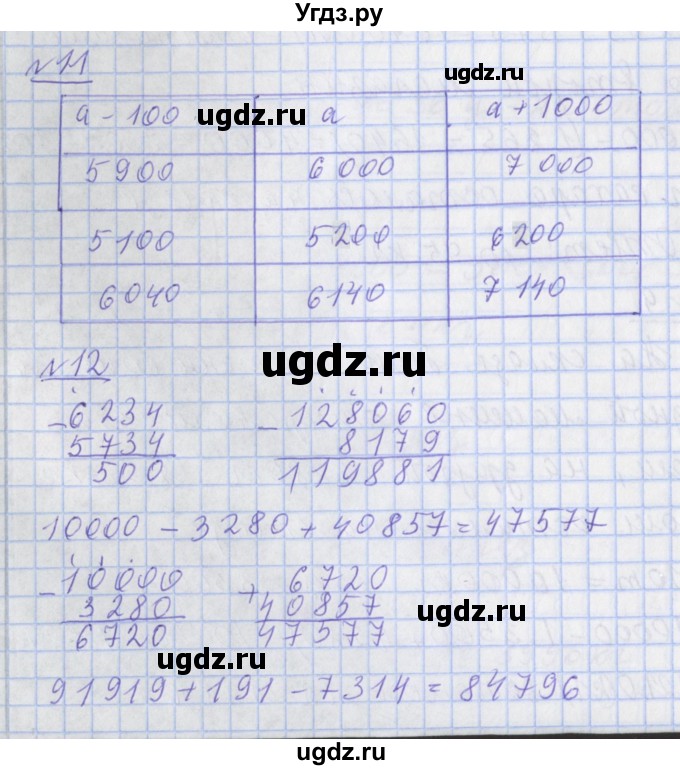 Угдз.ру
№11
ugdz.ru
a - 100 ugdz.ru a a + 1000
5900 6000 7000
5100 5200 6200
6040 6140 7140
№12
ugdz.ru
- 6234 - 128060
5734 8179
500 119881
10000 - 3280 + 40857 = 47577
- 10000 + 6720
3280 40857
6720 47577
ugdz.ru ugdz.ru
91919 + 191 - 7314 = 84796
ugdz.ru